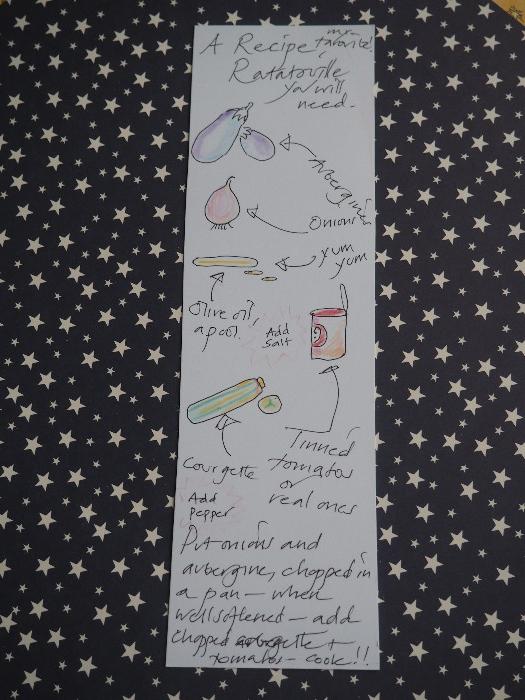 A Recipe my
favorite!
Ratatouille
you will
need.
Aubergines
Onions
yum
yum
Olive oil,
a pool.
Add
Salt
Tinned
tomatoes
or
real ones
Courgette
Add
Pepper
Put onions and
aubergine, chopped in
a pan - when
well softened - add
chopped courgette +
tomatoes - cook!!